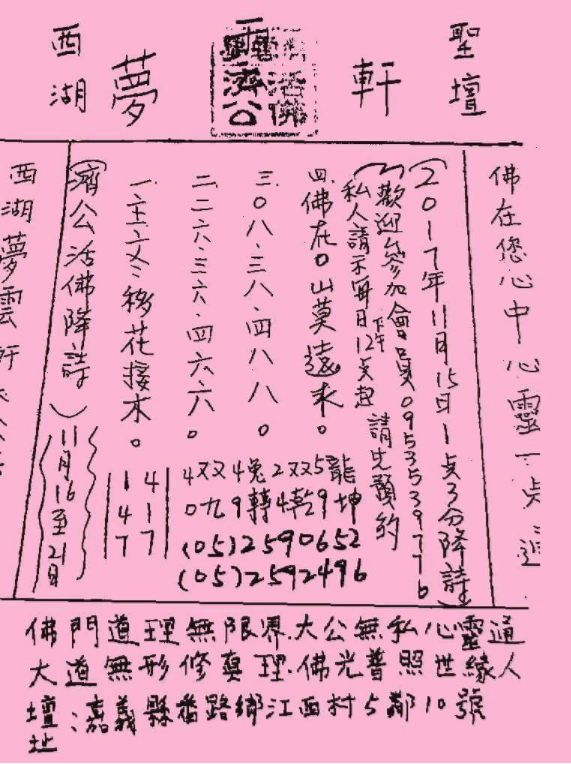 聖壇
軒
濟公
活佛
夢
西湖
佛在您心中心靈一点
(2017年11月15日1点3分降詩)
(歡迎參加會員0953539776
私人請示每日下午12点起 請先預約
四、佛在口山莫遠求。
三、0八、三八、四八八。
二、二六、三六、四六六。
一、王文冬移花接木。
(濟公活佛降詩)
(11月16至21日)
龍坤
5 9
双乾
2 4
兔轉
4 9
双九
4 0
(05)2590652
(05)2592496
4 1 7
1 4 7
西湖夢雲軒
佛門道理無限界.大公無私心靈通
大道無形修真理.佛光普照世緣人
壇址:嘉義縣番路鄉江西村5鄰10號